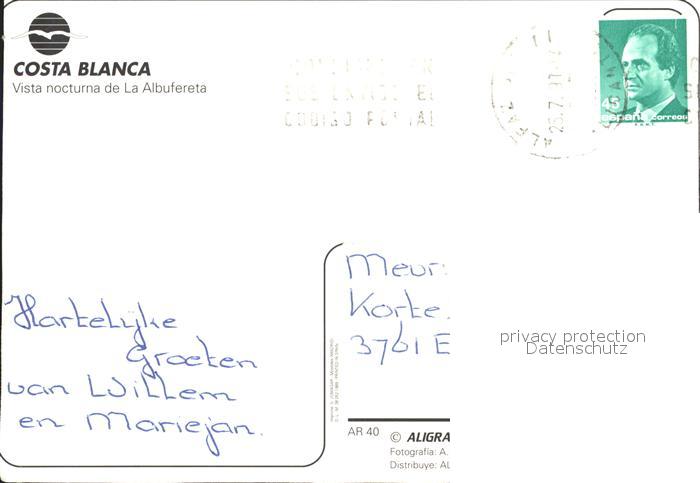 COSTA BLANCA
Vista nocturna de La Albufereta
CODIGO POSTAL
45
españa correos
Hartelijke
Groeten
van Willem
en Mariejan.
Meur.
Korte
3761 E
privacy protection
Datenschutz
AR 40
© ALIGRA
Fotografía: A.
Distribuye: AL